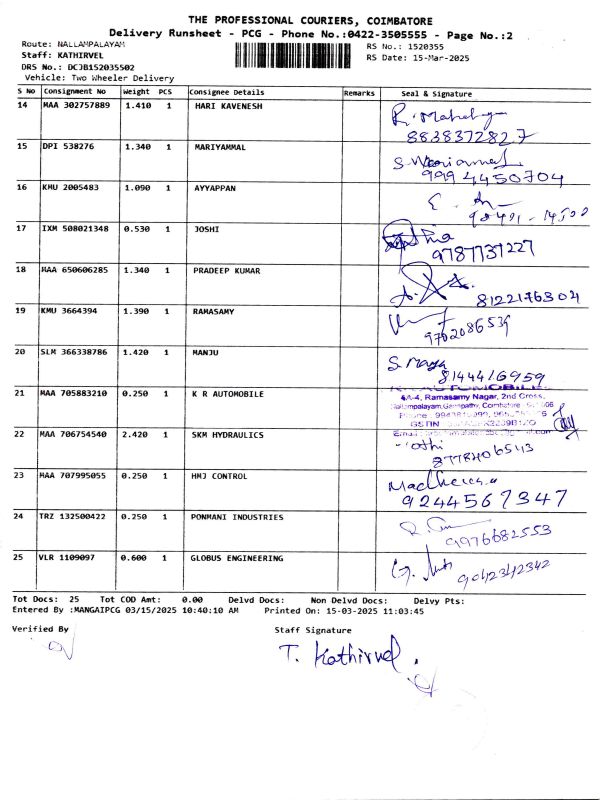 THE PROFESSIONAL COURIERS, COIMBATORE
Delivery Runsheet - PCG - Phone No.:0422-3505555 - Page No.:2
Route: NALLAMPALAYAM
RS No.: 1520355
Staff: KATHIRVEL
RS Date: 15-Mar-2025
DRS No.: DCJB152035502
Vehicle: Two Wheeler Delivery
S No Consignment No Weight PCS Consignee Details Remarks Seal & Signature
14 MAA 302757889 1.410 1 HARI KAVENESH
8838372827
15 DPI 538276 1.340 1 MARIYAMMAL
9994450704
16 KMU 2005483 1.090 1 AYYAPPAN
17 IXM 508021348 0.530 1 JOSHI
9787737227
18 MAA 650606285 1.340 1 PRADEEP KUMAR
8122176304
19 KMU 3664394 1.390 1 RAMASAMY
9702086539
20 SLM 366338786 1.420 1 MANJU
8144416959
21 MAA 705883210 0.250 1 K R AUTOMOBILE
4A-4, Ramasamy Nagar, 2nd Cross,
Nallampalayam, Ganapathy, Coimbatore
22 MAA 706754540 2.420 1 SKM HYDRAULICS
8778406543
23 MAA 707995055 0.250 1 HMJ CONTROL
9244567347
24 TRZ 132500422 0.250 1 PONMANI INDUSTRIES
9976682553
25 VLR 1109097 0.600 1 GLOBUS ENGINEERING
9042342342
Tot Docs: 25 Tot COD Amt: 0.00 Delvd Docs: Non Delvd Docs: Delvy Pts:
Entered By :MANGAIPCG 03/15/2025 10:40:10 AM Printed On: 15-03-2025 11:03:45
Verified By
Staff Signature
T. Kathirvel.